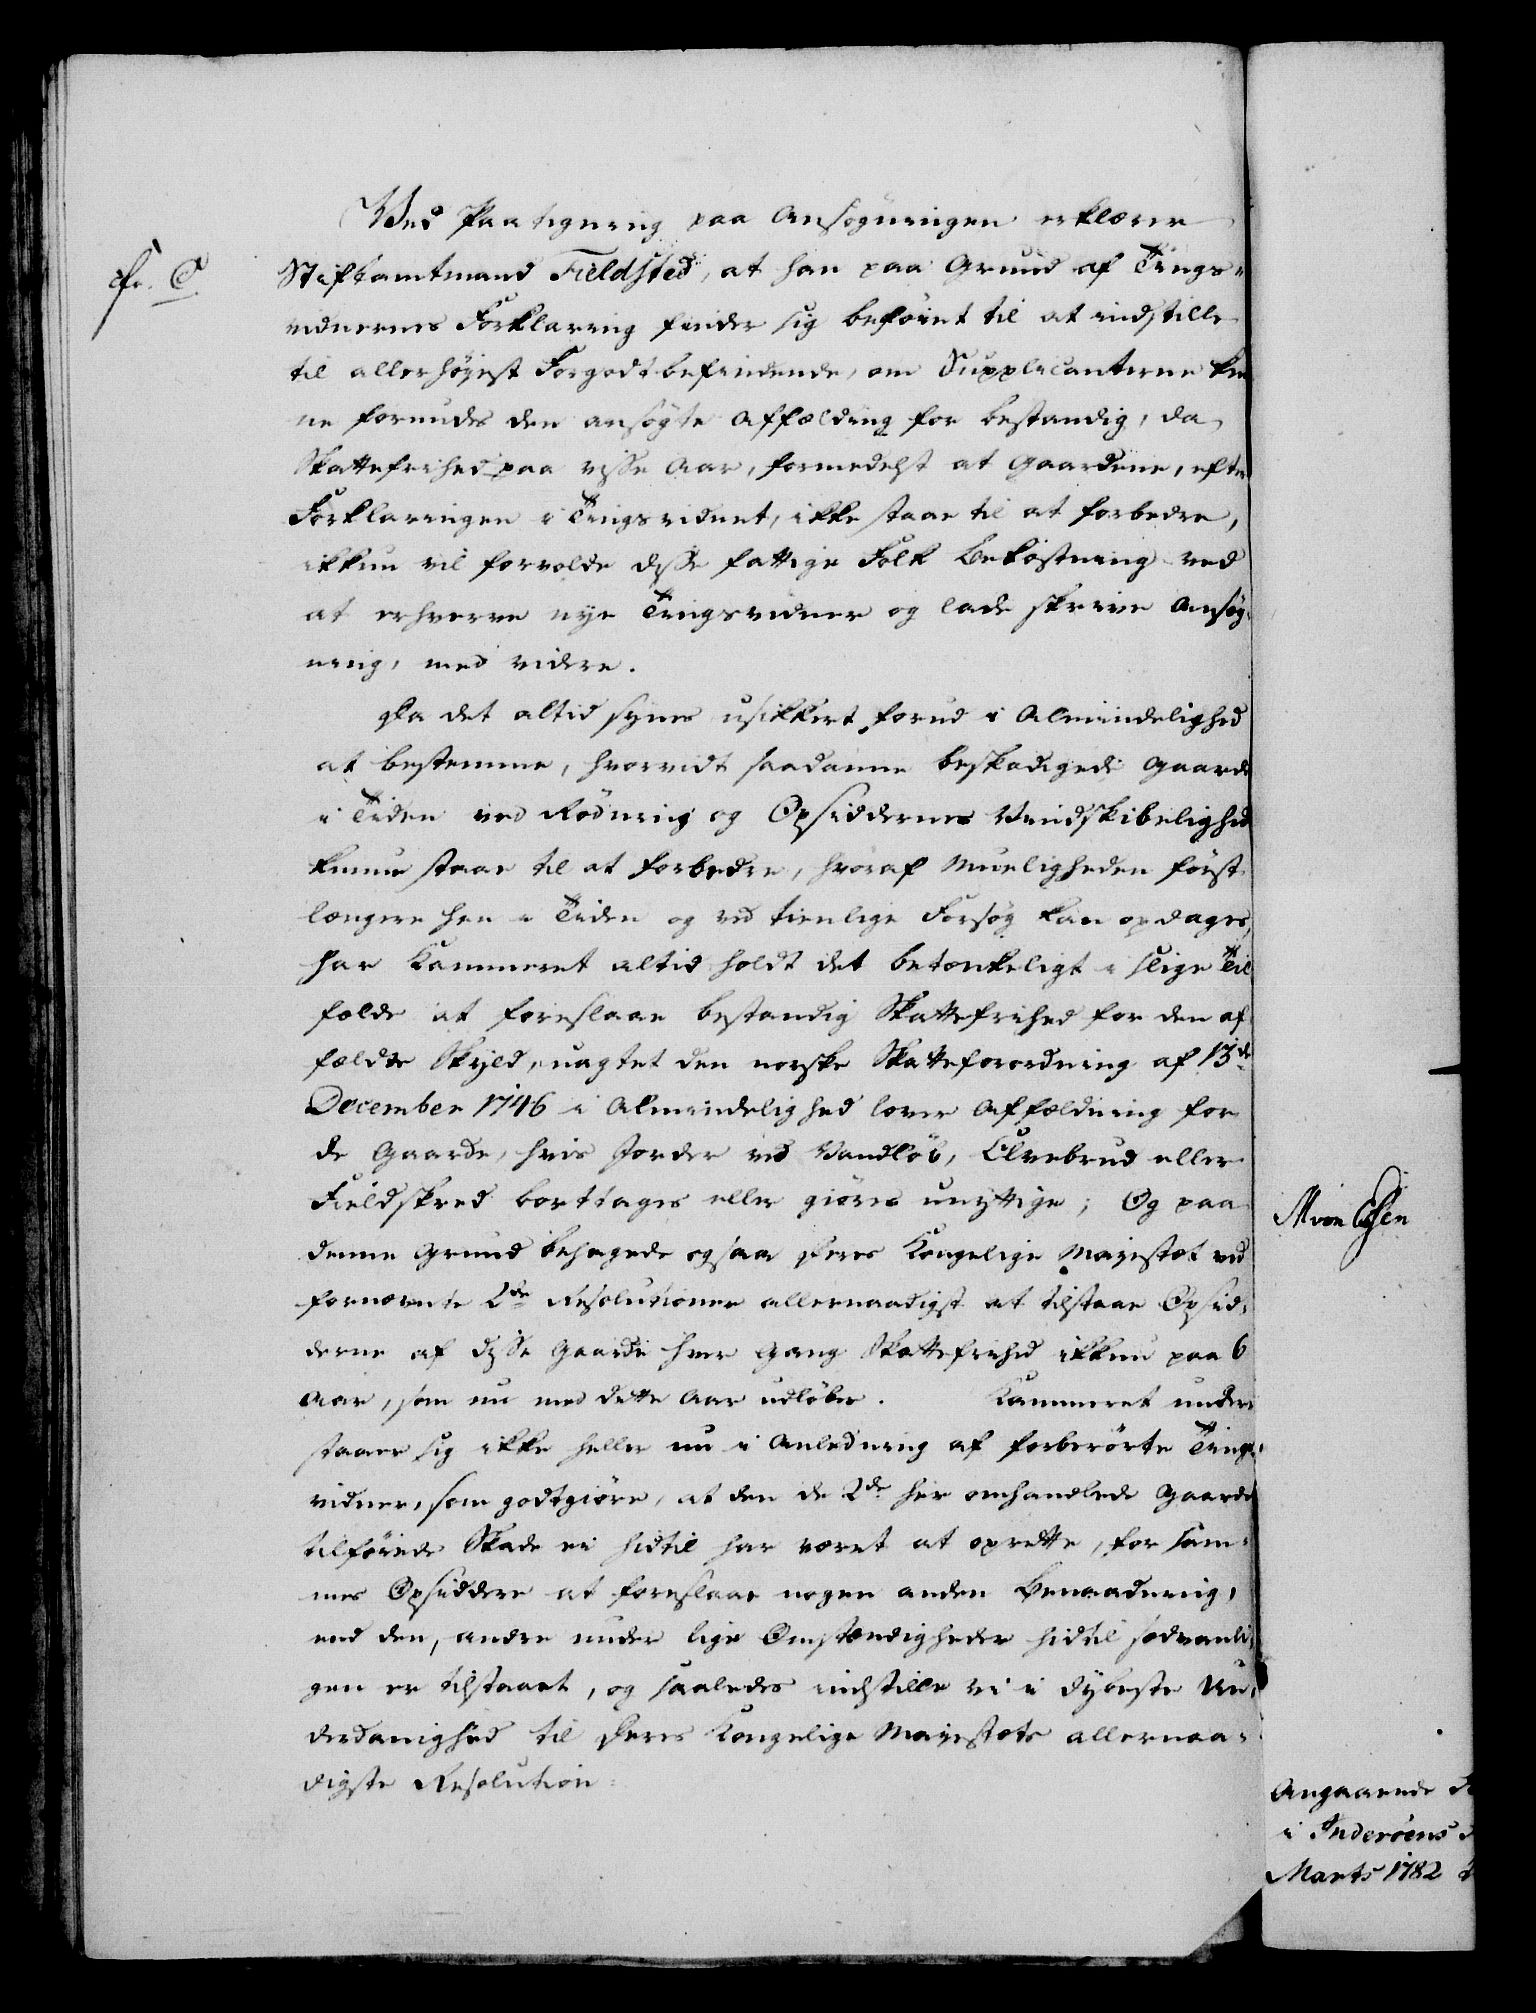 Ved Paategning paa Ansøgningen erklærer
cfr. C.
Stiftamtmand Fieldsted, at han paa Grund af Tings-
vidnernes Forklaring finder sig beføiet til at indstille
til allerhøyest Forgodtbefindende, om Supplicanterne kun-
ne forundes den ansøgte Affældning for bestandig, da
Skattefrihed paa visse Aar, formedelst at Gaardene, efter
Forklaringen i Tingsvidnet, ikke staae til at forbedre,
ikkun vil forvolde disse fattige Folk Bekostning ved
at erhverve nye Tingsvidner og lade skrive Ansøg-
ning, med videre.
Da det altid synes usikkert, forud i Almindelighed
at bestemme, hvorvidt saadanne beskadigede Gaarde
i Tiden ved Rødning og Opsiddernes Vindskibelighed
kunne staae til at forbedre, hvoraf Mueligheden først
længere hen i Tiden og ved tienlige Forsøg kan opdages,
har Kammeret altid holdt det betænkeligt i slige Til-
fælde at foreslaae bestandig Skattefrihed for den af-
fældte Skyld, uagtet den norske Skatteforordning af 13de
December 1746 i Almindelighed lover Affældning for
de Gaarde, hvis Jorder ved Vandløb, Elvebrud eller
Fieldskred borttages eller giøres unyttige; Og paa
denne Grund behagede ogsaa Deres Kongelige Majestæt ved
fornævnte 2de Resolutioner allernaadigst at tilstaae Opsid-
derne af disse Gaarde hver Gang Skattefrihed ikkun paa 6
Aar, som nu med dette Aar udløber. Kammeret under-
staaer sig ikke heller nu i Anledning af forberørte Tings-
vidner, som godtgiøre, at den de 2de her omhandlede Gaarde
tilføiede Skade ei hidtil har været at oprette, for sam-
mes Opsiddere at foreslaae nogen anden Benaadning,
end den, andre under lige Omstændigheder hidtil sædvanli-
gen er tilstaaet, og saaledes indstille vi i dybeste Un-
derdanighed til Deres Kongelige Majestæts allernaa-
digste Resolution:
M von Essen
Angaaende
i Inderøens
Marts 1782